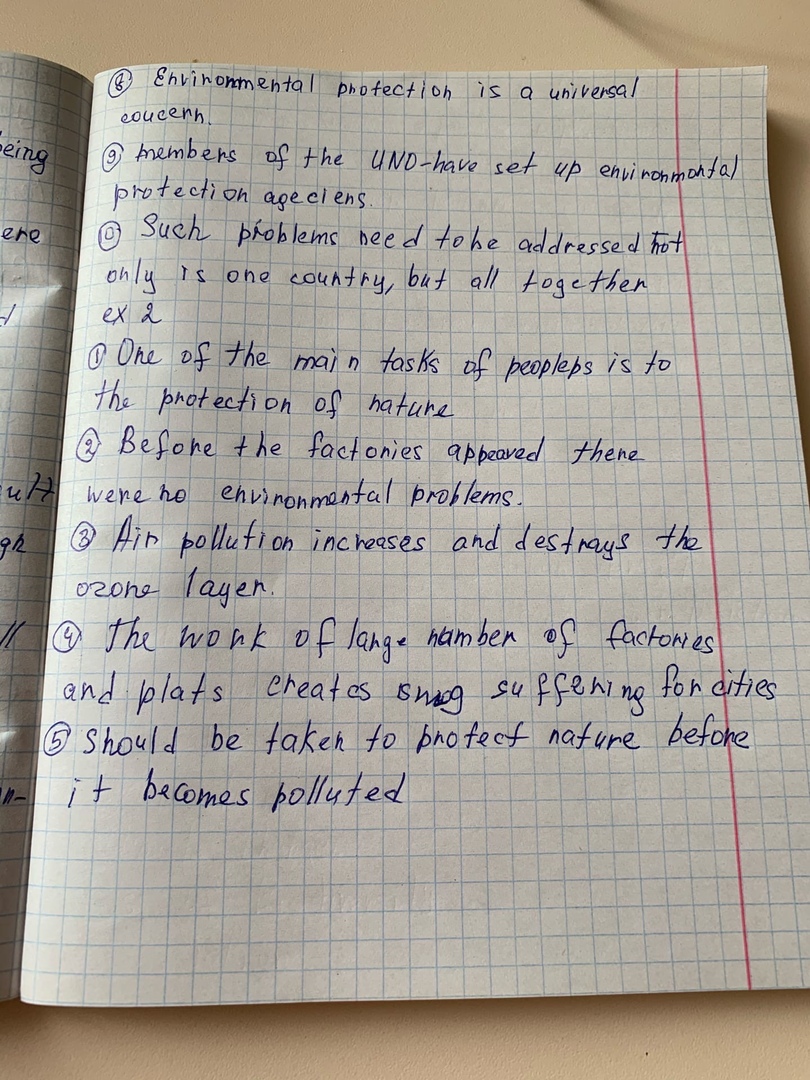 ⑧ Environmental protection is a universal
concern.
⑨ members of the UNO-have set up environmontal
protection ageciens.
⑩ Such problems need to be addressed not
only is one country, but all together
ex 2
① One of the main tasks of peopleps is to
the protection of nature
② Before the factories appeared there
were no environmental problems.
③ Air pollution increases and destrays the
ozone layer.
④ The work of large number of factories
and plats creates smog suffering for cities
⑤ Should be taken to protect nature before
it becomes polluted
eing
ere
ult
gh